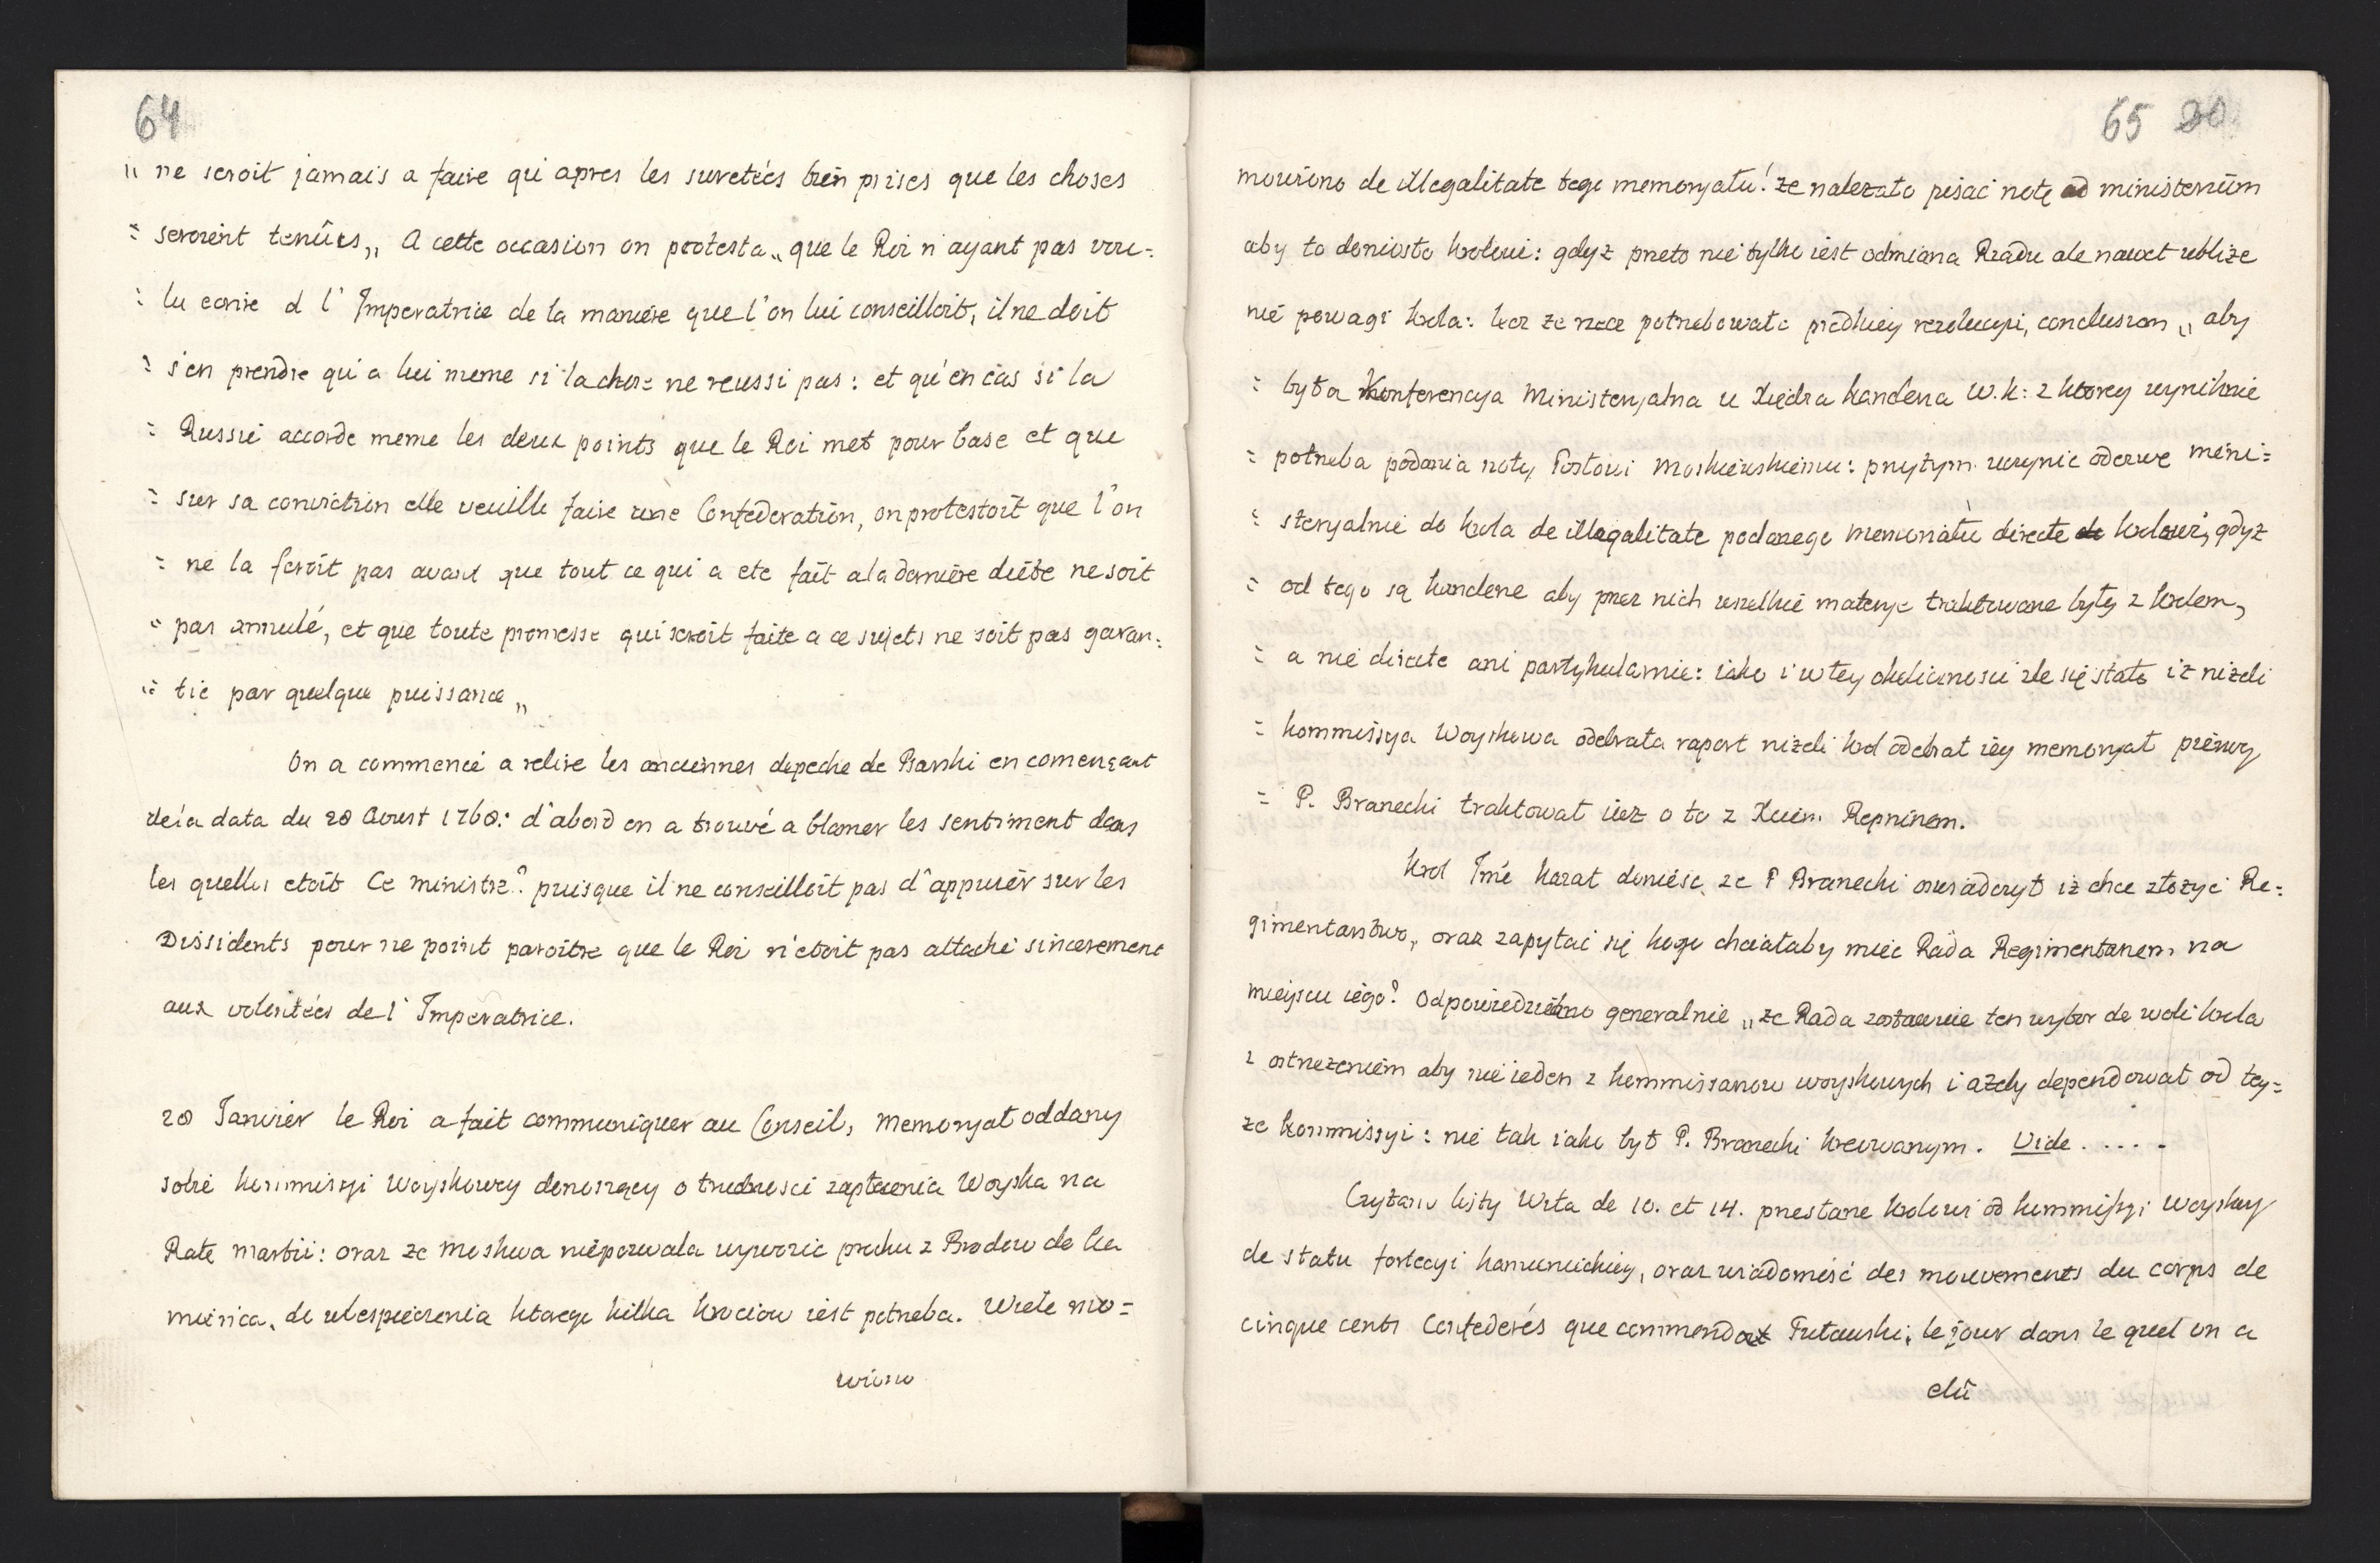 64
„ ne seroit jamais a faire qu'apres les suretées bien prises que les choses
= seroient tenûes„ A cette occasion on protesta „que le Roi n'ayant pas vou=
= lu ecrire a l'Imperatrice de la maniere que l'on lui conseilloit, il ne doit
= s'en prendre qu'a lui meme si la chose ne reussi pas: et qu'en cas si la
= Russie accorde meme les deux points que le Roi met pour base et que
= sur sa conviction elle veuille faire une Confederation, on protestoit que l'on
= ne la feroit pas avant que tout ce qui a ete fait a la derniere diéte ne soit
= pas annulé, et que toute promesse qui seroit faite a ce sujets ne soit pas garan=
= tie par quelque puissance„
On a commencé a relire les anciennes depeche de Psarski en començant
de la data du 20 Aoust 1768: d'abord on a trouvé a blamer les sentiment dans
les quelles etoit Ce ministre? puisque il ne conseilloit pas d'appuiér sur les
Dissidents pour ne point paroitre que le Roi n'etoit pas attaché sincerement
aux volontées de l'Imperatrice.
20 Janvier le Roi a fait communiquer au Conseil, Memoryał oddany
sobie kommissyi Woyskowey donoszący o trudnosci zapłacenia Woyska na
Ratę martii: oraz ze Moskwa niepozwala wywozic prochu z Brodow do Ka
mienca, do ubespieczenia ktorego kilka krociow iest potrzeba. Wiele mo=
wiono
65 30
mowiono de illegalitate tego memoryału! ze nalezało pisać notę ad ministerium
aby to doniosło krolowi: gdyz przeto nie tylko iest odmiana Rządu ale nawet ubliże
nie powagi krola: lecz ze rzecz potrzebowała prędkiey rezolucyi, conclusum „ aby
= była Konferencya Ministeryalna u Xiędza kanclerza W. k: z ktorey wyniknie
= potrzeba podania noty Posłowi Moskiewskiemu: przytym uczynic odezwę mini=
= steryalnie do krola de illegalitate podanego memoriału directe krolowi, gdyz
= od tego są kanclerze aby przez nich wszelkie materye traktowane były z krolem,
= a nie directe ani partykularnie: iako i w tey okolicznosci zle się stało iz nizeli
= kommissya Woyskowa odebrała raport nizeli krol odebrał iey memoryał pierwey
= P. Branecki traktował iuz o to z Xciem Repninem.
Krol Jmć kazał doniesc, ze P Branecki oswiadczył iz chce złozyć Re=
gimentarstwo, oraz zapytać się kogo chciałaby miec Rada Regimentarzem na
mieyscu iego? Odpowiedziano generalnie „ze Rada zostawuie ten wybor do woli krola
z ostrzezeniem aby nie ieden z kommissarzow woyskowych i azeby dependował od tey=
ze kommissyi: nie tak iako był P. Branecki kreowanym. Vide . . . . .
Czytano listy Wita de 10. et 14. przesłane krolowi od kommissyi Woyskey
de statu fortecyi kamienickiey, oraz wiadomość des mouvements du corps de
cinque cents Confederés que commendoit Pułauski; le jour dans le quel on a
elû